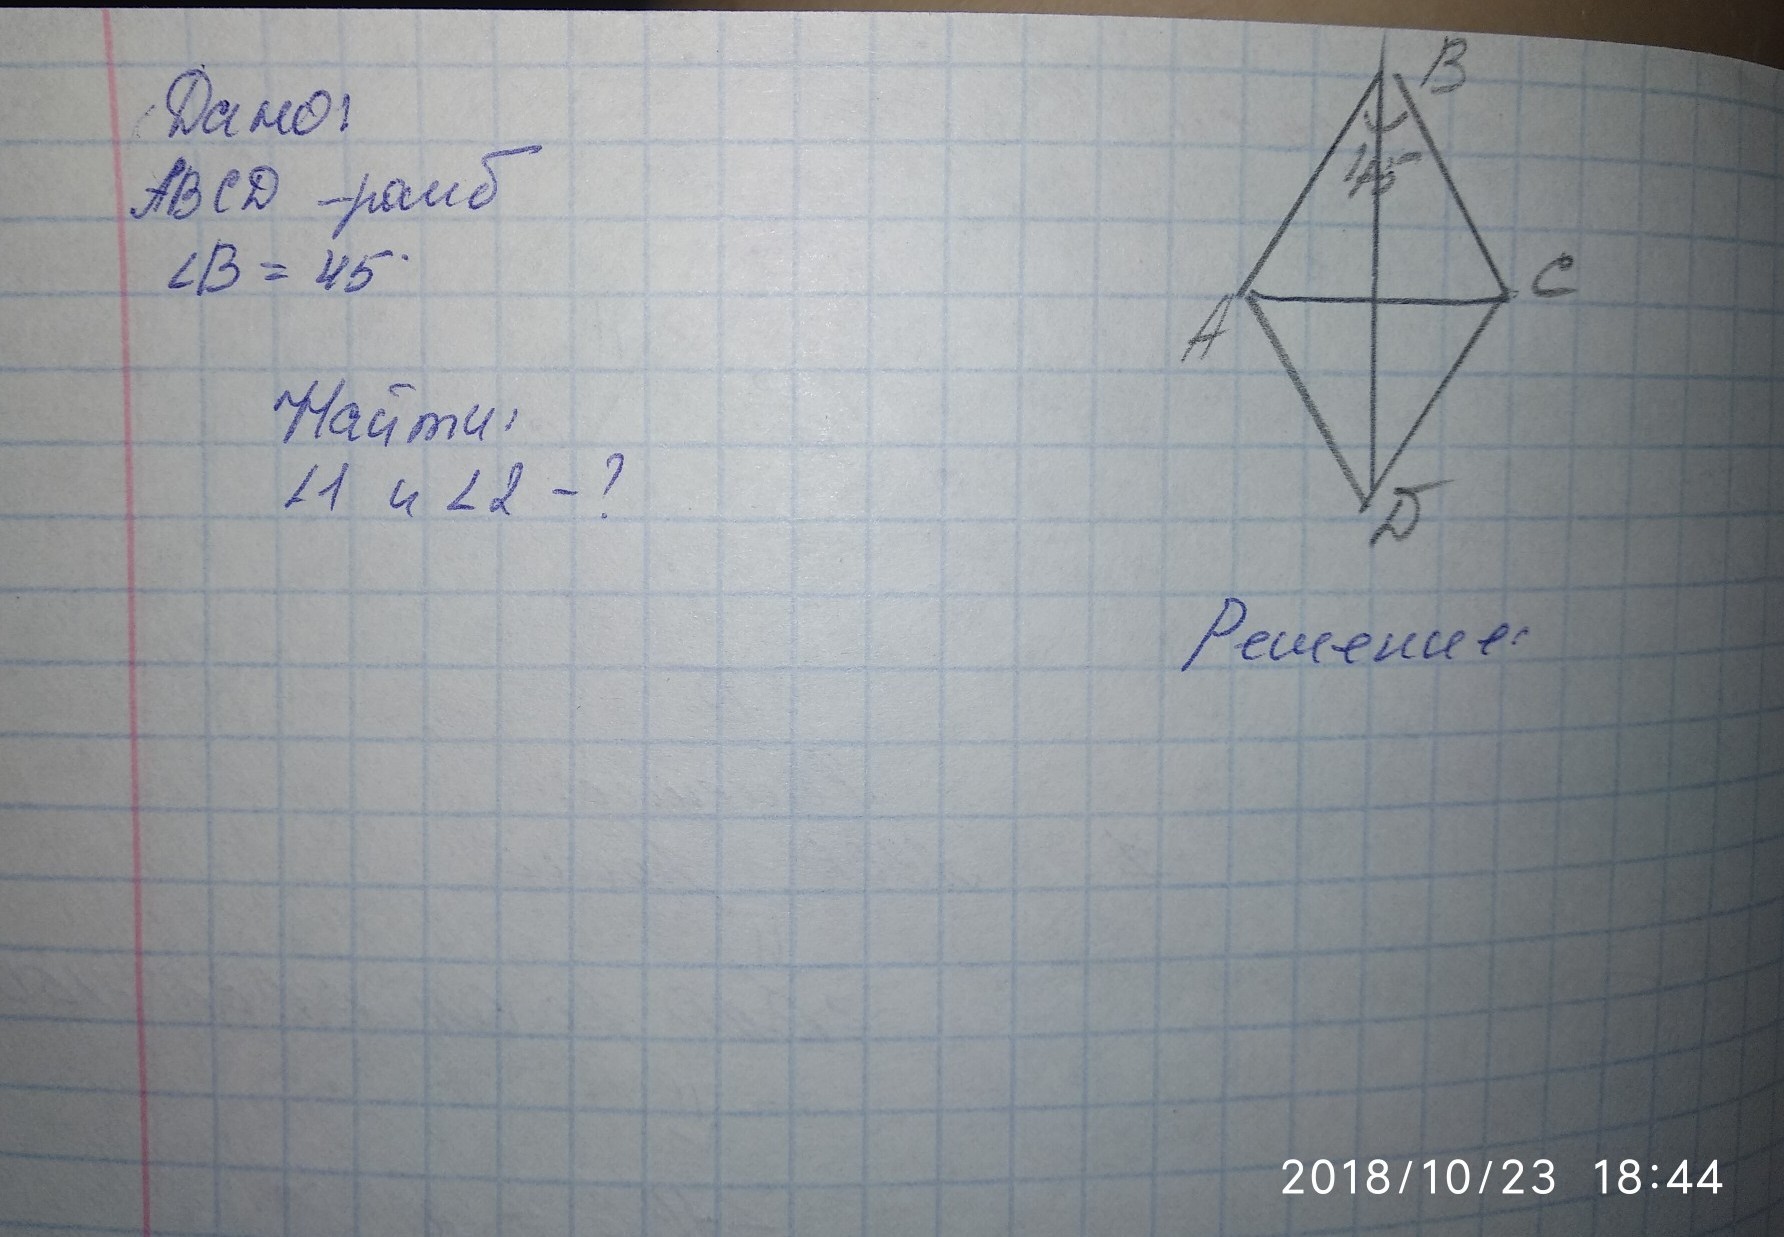 Дано:
ABCD - ромб
∠B = 45°
Найти:
∠1 и ∠2 - ?
B
45
A
C
D
Решение:
2018/10/23 18:44